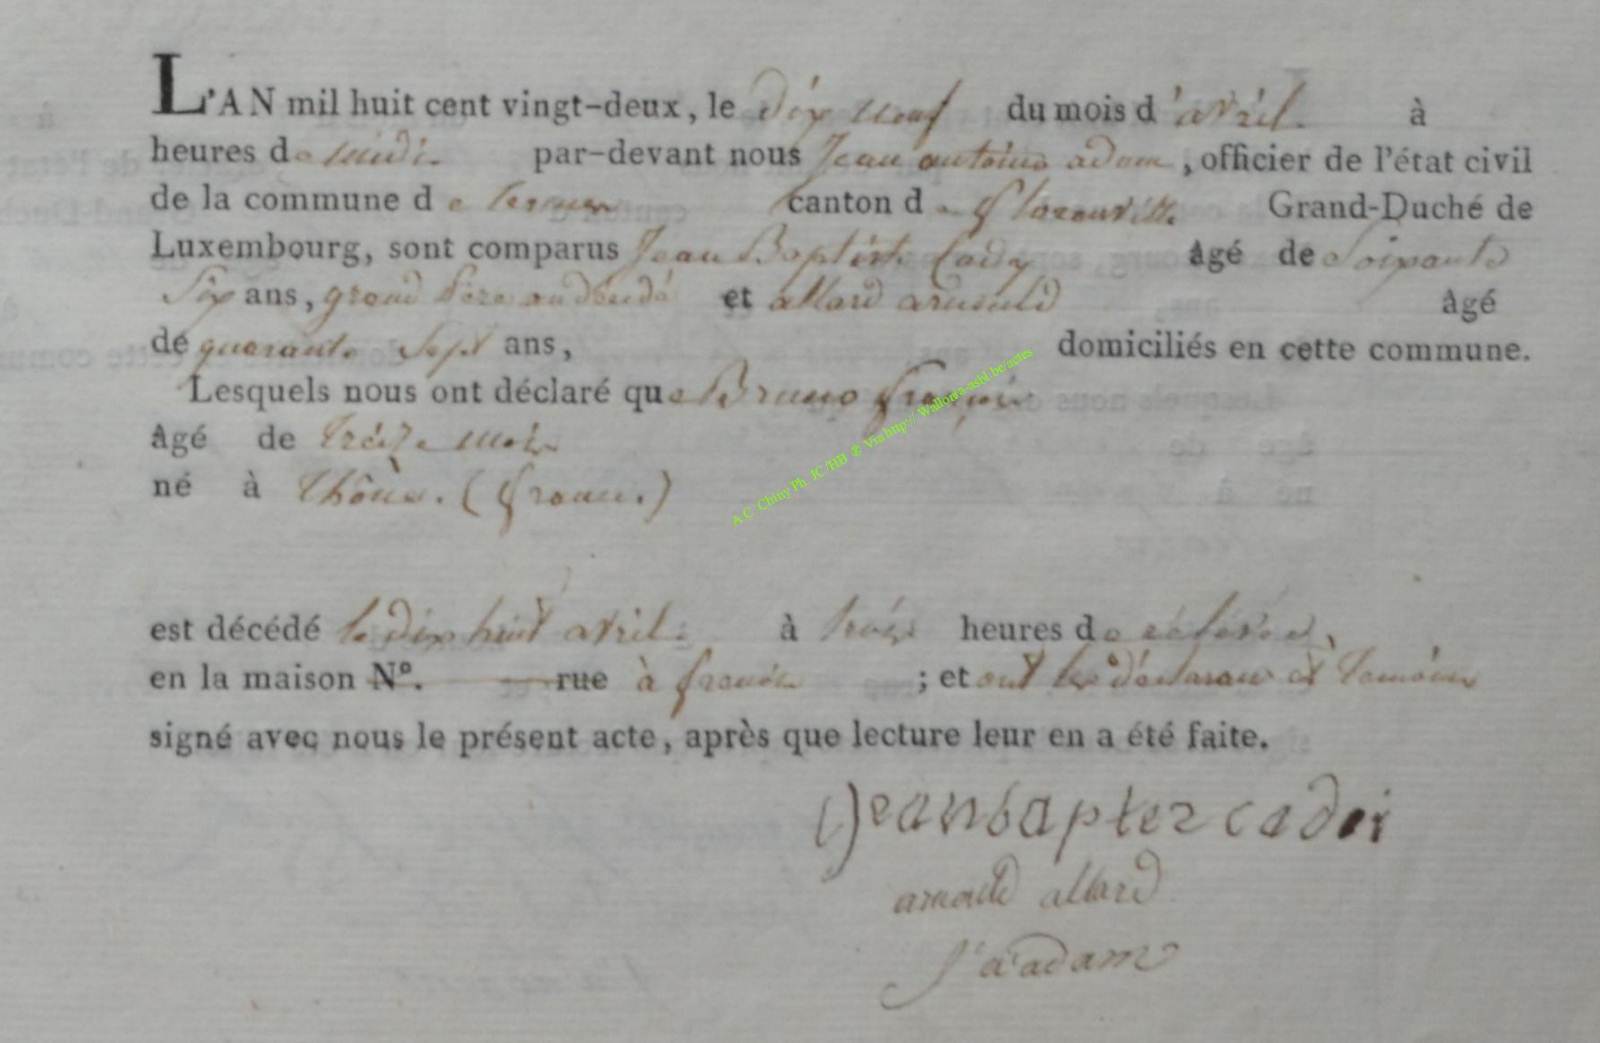 L'AN mil huit cent vingt-deux, le dix neuf du mois d'avril à
heures de midi par-devant nous Jean antoine adam, officier de l'état civil
de la commune de termes canton de florenville Grand-Duché de
Luxembourg, sont comparus Jean Baptiste Cady âgé de Soixante
Six ans, grand Père au décédé et allard arnould âgé
de quarante Sept ans, domiciliés en cette commune.
Lesquels nous ont déclaré que Bruno françois
âgé de treize mois
né à (france.)
est décédé le dix huit avril à trois heures de relevée,
en la maison N°. rue à frenois ; et ont les déclarans et temoins
signé avec nous le présent acte, après que lecture leur en a été faite.
Jeanbapter cadei
arnould allard
J a adam
A.C. Chiny Ph JC/HB ® Via http://Wallonia-asbl.be/actes